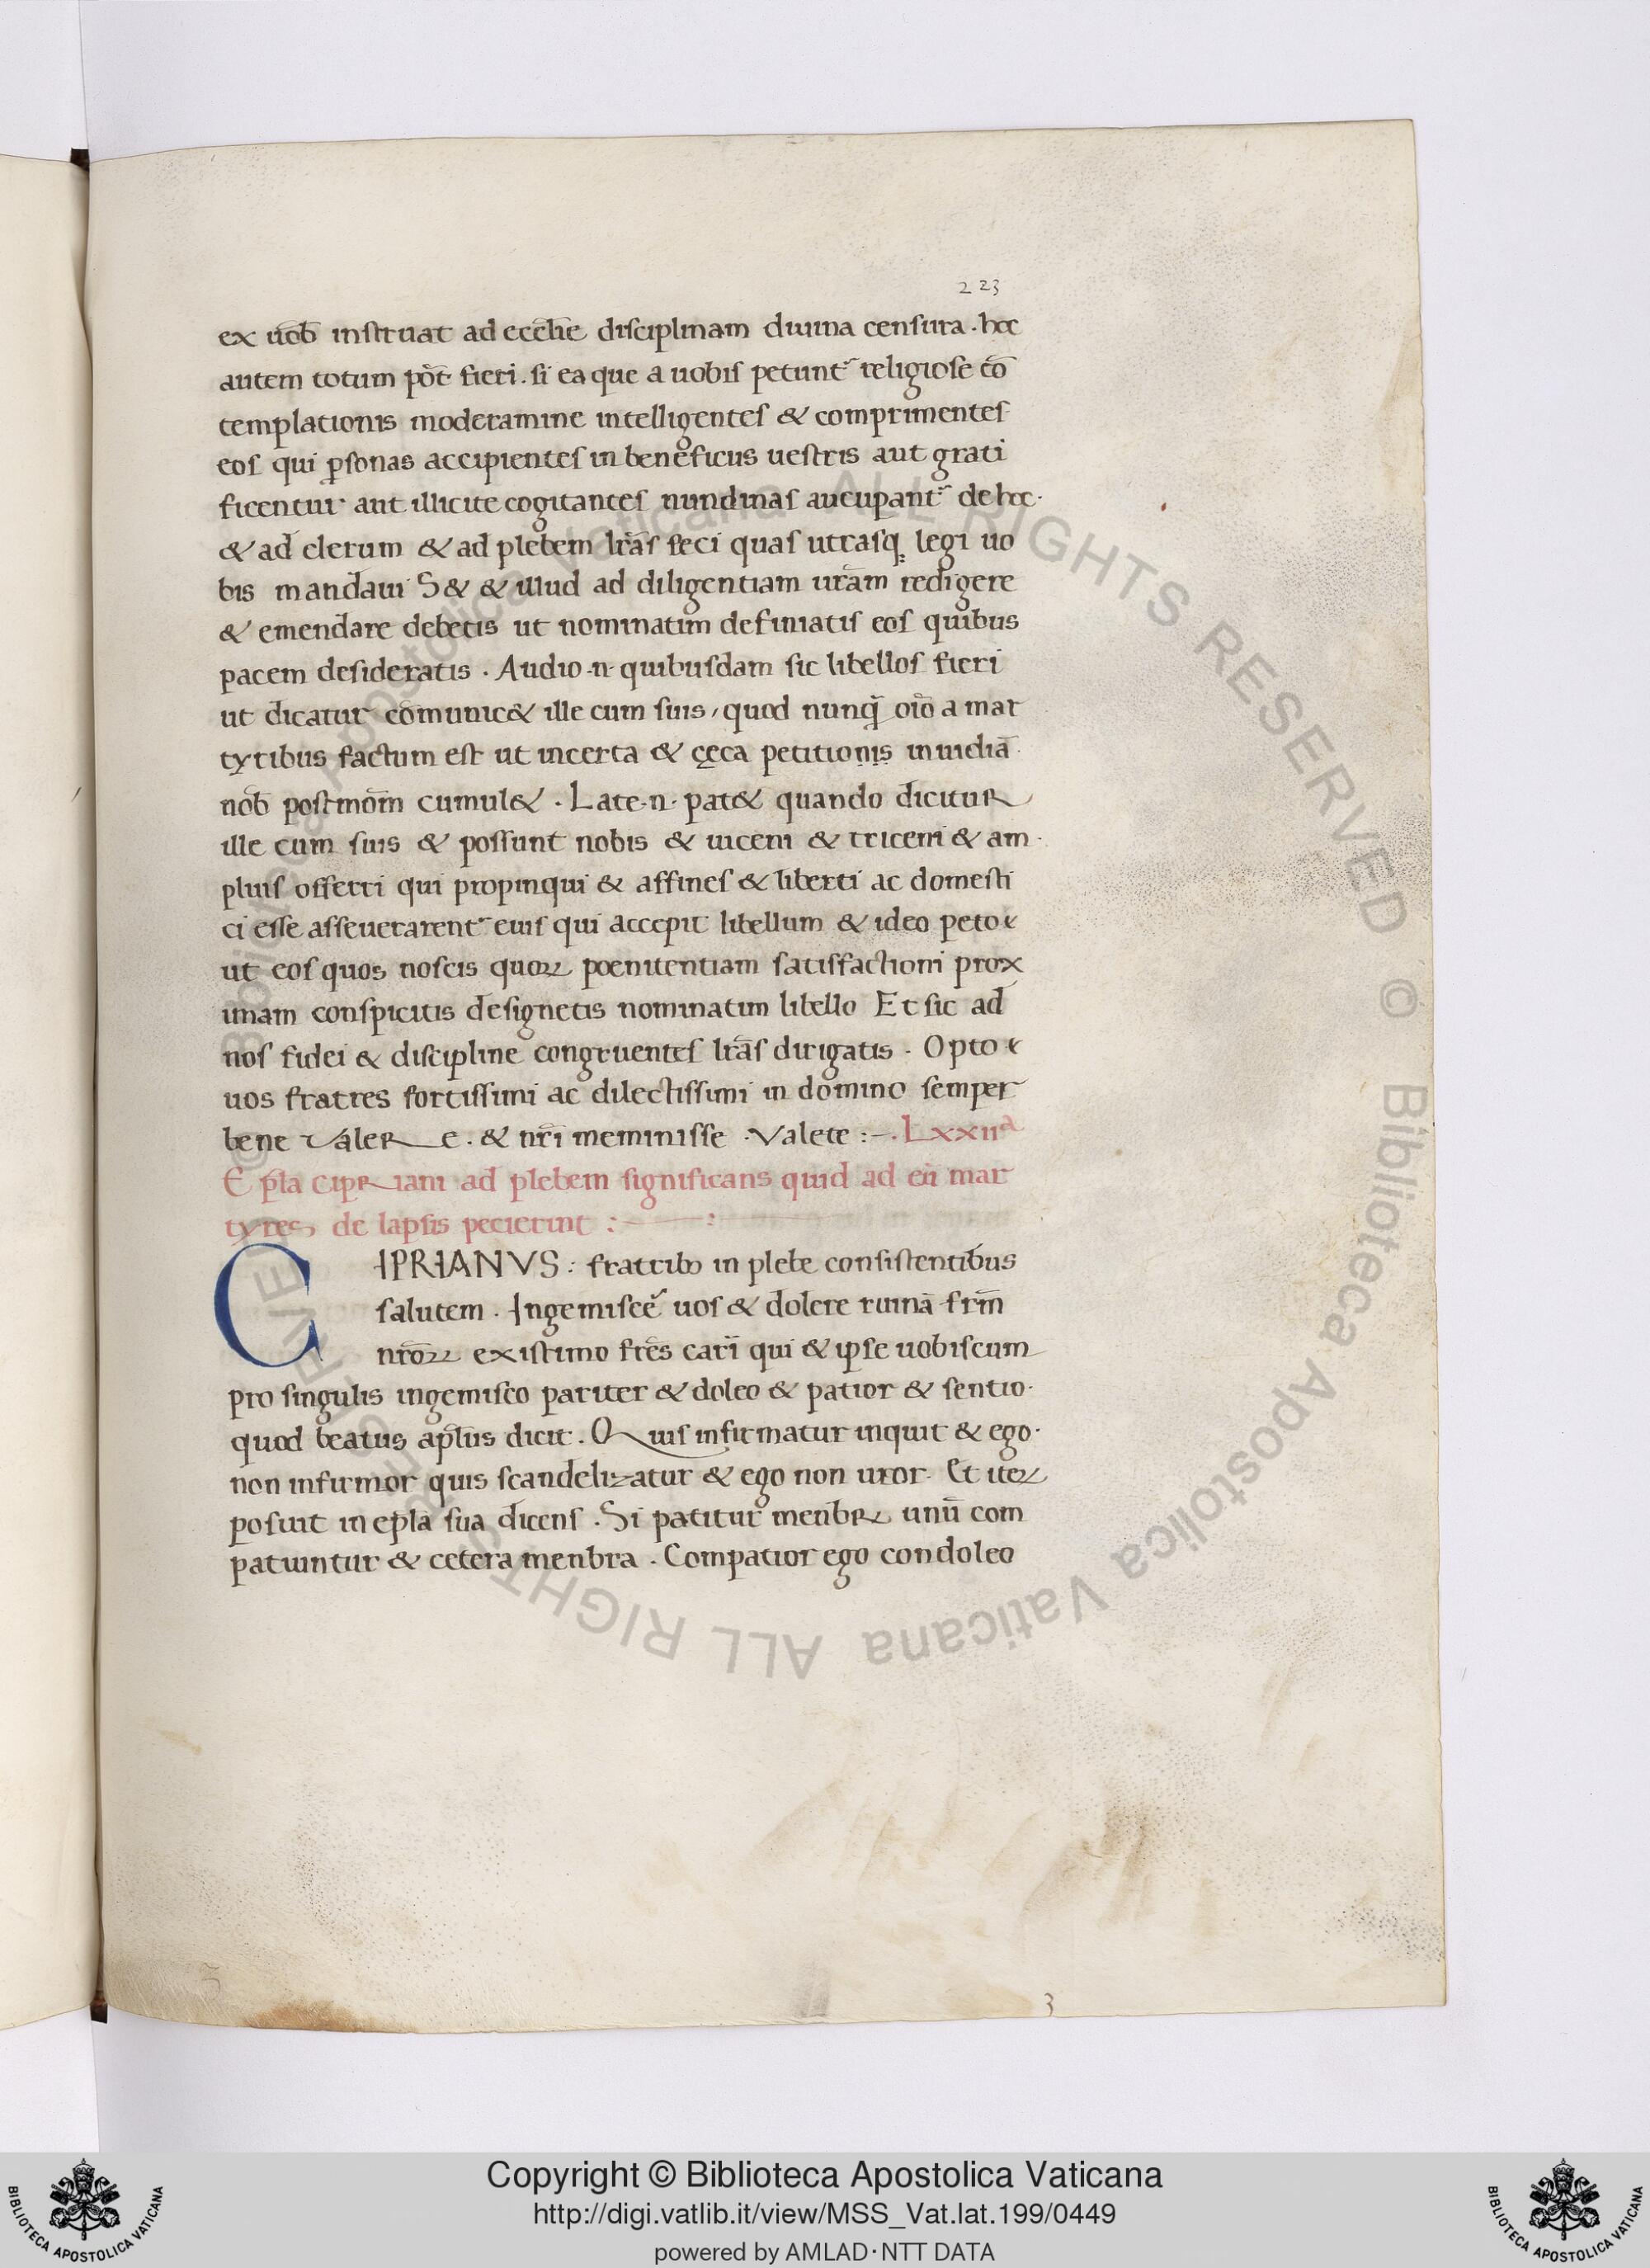 223
ex uob̄ instruat ad eccl̄ie disciplinam diuina censura . hoc
autem totum pōt fieri . si ea que a uobis petunt᷑ religiose cō
templationis moderamine intelligentes & comprimentes
eos qui ꝑsonas accipientes in beneficus uestris aut grati
ficentur aut illicite cogitantes nundinas aucupant᷑ de hoc ·
& ad clerum & ad plebem lr̄as feci quas utrasq; legi uo
bis mandaui S& & illud ad diligentiam ur̄am redigere
& emendare debetis ut nominatim definiatis eos quibus
pacem desideratis . Audio .n. quibusdam sic libellos fieri
ut dicatur cōmunic& ille cum suis, quod nunq̄ oīo a mar
tyribus factum est ut incerta & cęca petitionis inuidiā
nob̄ postmōm cumul& . Late .n. pat& quando dicitur
ille cum suis & possunt nobis & uiceni & triceni & am
plius offerri qui propinqui & affines & liberti ac domesti
ci esse asseuerarent᷑ euis qui accepit libellum & ideo peto
ut eos quos noscis quoꝝ poenitentiam satisfactioni prox
imam conspicitis designetis nominatim libello Et sic ad
nos fidei & discipline congruentes lr̄as dirigatis . Opto
uos fratres fortissimi ac dilectissimi in domino semper
bene valere . & nr̄i meminisse . Valete :- . Lxxiiᵃ
Epl̄a cipriani ad plebem significans quid ad eū mar
tyres de lapsis pecierint :
CIPRIANVS : fratribꝰ in plebe consistentibus
salutem . Ingemiscē uos & dolere ruinā frm̄
nr̄oꝝ existimo fr̄es cari qui & ipse uobiscum
pro singulis ingemisco pariter & doleo & patior & sentio ·
quod beatus apl̄us dicit . Quis infirmatur inquit & ego ·
non infirmor quis scandelizatur & ego non uror . Et iteꝝ
posuit in epl̄a sua dicens . Si patitur menbꝝ unū com
patiuntur & cetera menbra . Compatior ego condoleo
3
© Biblioteca Apostolica Vaticana ALL RIGHTS RESERVED © Biblioteca Apostolica Vaticana ALL RIGHTS RESERVED
Copyright © Biblioteca Apostolica Vaticana
http://digi.vatlib.it/view/MSS_Vat.lat.199/0449
powered by AMLAD·NTT DATA
BIBLIOTECA APOSTOLICA VATICANA
BIBLIOTECA APOSTOLICA VATICANA